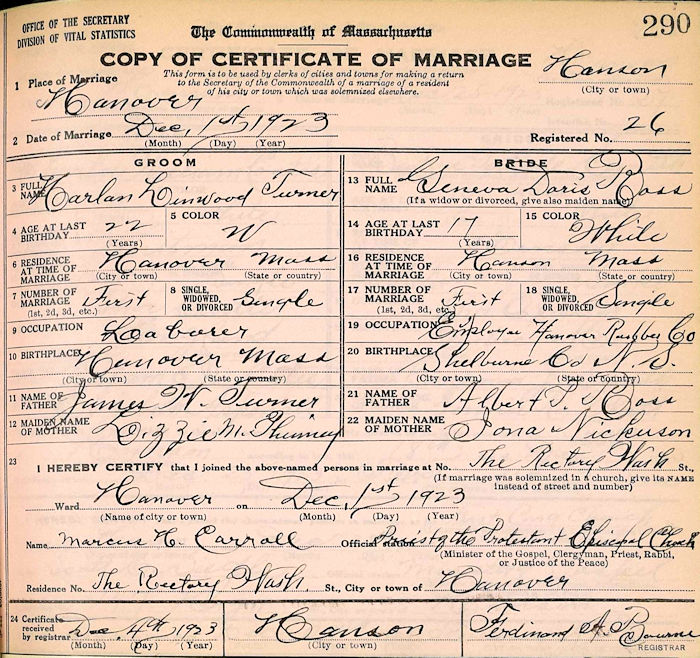 290
OFFICE OF THE SECRETARY
DIVISION OF VITAL STATISTICS
The Commonwealth of Massachusetts
COPY OF CERTIFICATE OF MARRIAGE
Hanson
(City or town)
This form is to be used by clerks of cities and towns for making a return
to the Secretary of the Commonwealth of a marriage of a resident
of his city or town which was solemnized elsewhere.
1 Place of Marriage
Hanover
2 Date of Marriage Dec, 1st 1923
(Month) (Day) (Year)
Registered No. 26
GROOM
3 FULL NAME Harlan Linwood Turner
4 AGE AT LAST BIRTHDAY 22
(Years)
5 COLOR
W
6 RESIDENCE AT TIME OF MARRIAGE Hanover Mass
(City or town) (State or country)
7 NUMBER OF MARRIAGE First
(1st, 2d, 3d, etc.)
8 SINGLE, WIDOWED, OR DIVORCED Single
9 OCCUPATION Laborer
10 BIRTHPLACE Hanover Mass
(City or town) (State or country)
11 NAME OF FATHER James W. Turner
12 MAIDEN NAME OF MOTHER Lizzie M.
BRIDE
13 FULL NAME Geneva Doris Ross
(If a widow or divorced, give also maiden name)
14 AGE AT LAST BIRTHDAY 17
(Years)
15 COLOR
White
16 RESIDENCE AT TIME OF MARRIAGE Hanson Mass
(City or town) (State or country)
17 NUMBER OF MARRIAGE First
(1st, 2d, 3d, etc.)
18 SINGLE, WIDOWED, OR DIVORCED Single
19 OCCUPATION Employee Hanover Rubber Co
20 BIRTHPLACE Shelburne Co N.S.
(City or town) (State or country)
21 NAME OF FATHER Albert T. Ross
22 MAIDEN NAME OF MOTHER Iona Nickerson
23
I HEREBY CERTIFY that I joined the above-named persons in marriage at No. The Rectory Wash St.,
(If marriage was solemnized in a church, give its NAME
instead of street and number)
Ward Hanover on Dec, 1st 1923
(Name of city or town) (Month) (Day) (Year)
Name Marcus H. Carroll Official station Priest of the Protestant Episcopal Church
(Minister of the Gospel, Clergyman, Priest, Rabbi,
or Justice of the Peace)
Residence No. The Rectory Wash. St., City or town of Hanover
24 Certificate received by registrar Dec, 4th 1923
(Month) (Day) (Year)
Hanson
(City or town)
Ferdinand A. Bourne
REGISTRAR